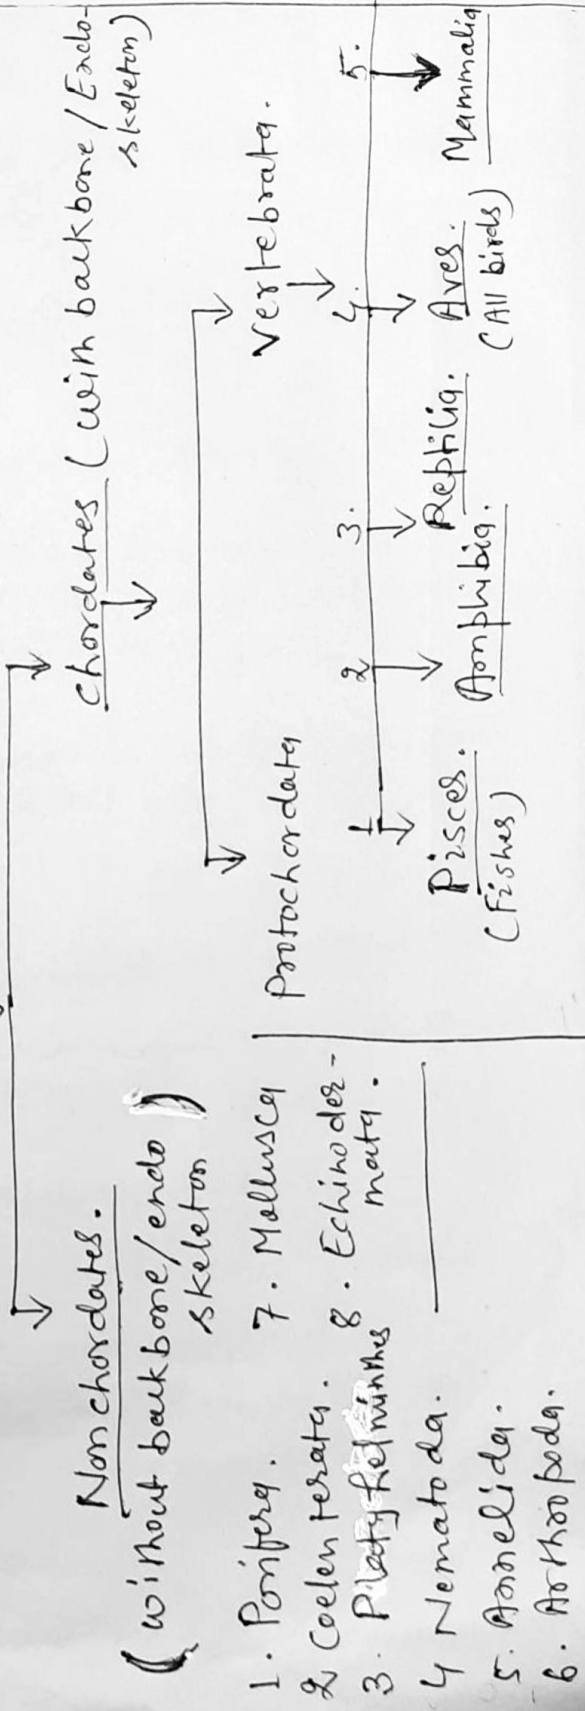 Non chordates.
(without backbone/endo
skeleton)
1. Porifera.
2 Coelenterata.
3. Platyhelminthes
4 Nematoda.
5. Annelida.
6. Arthropoda.
7. Mollusca
8. Echinoder-
mata.
Chordates (with backbone/Endo-
skeleton)
Protochordata
Vertebrata.
1
2
3.
4.
5.
Pisces.
(Fishes)
Amphibia.
Reptilia.
Aves.
(All birds)
Mammalia